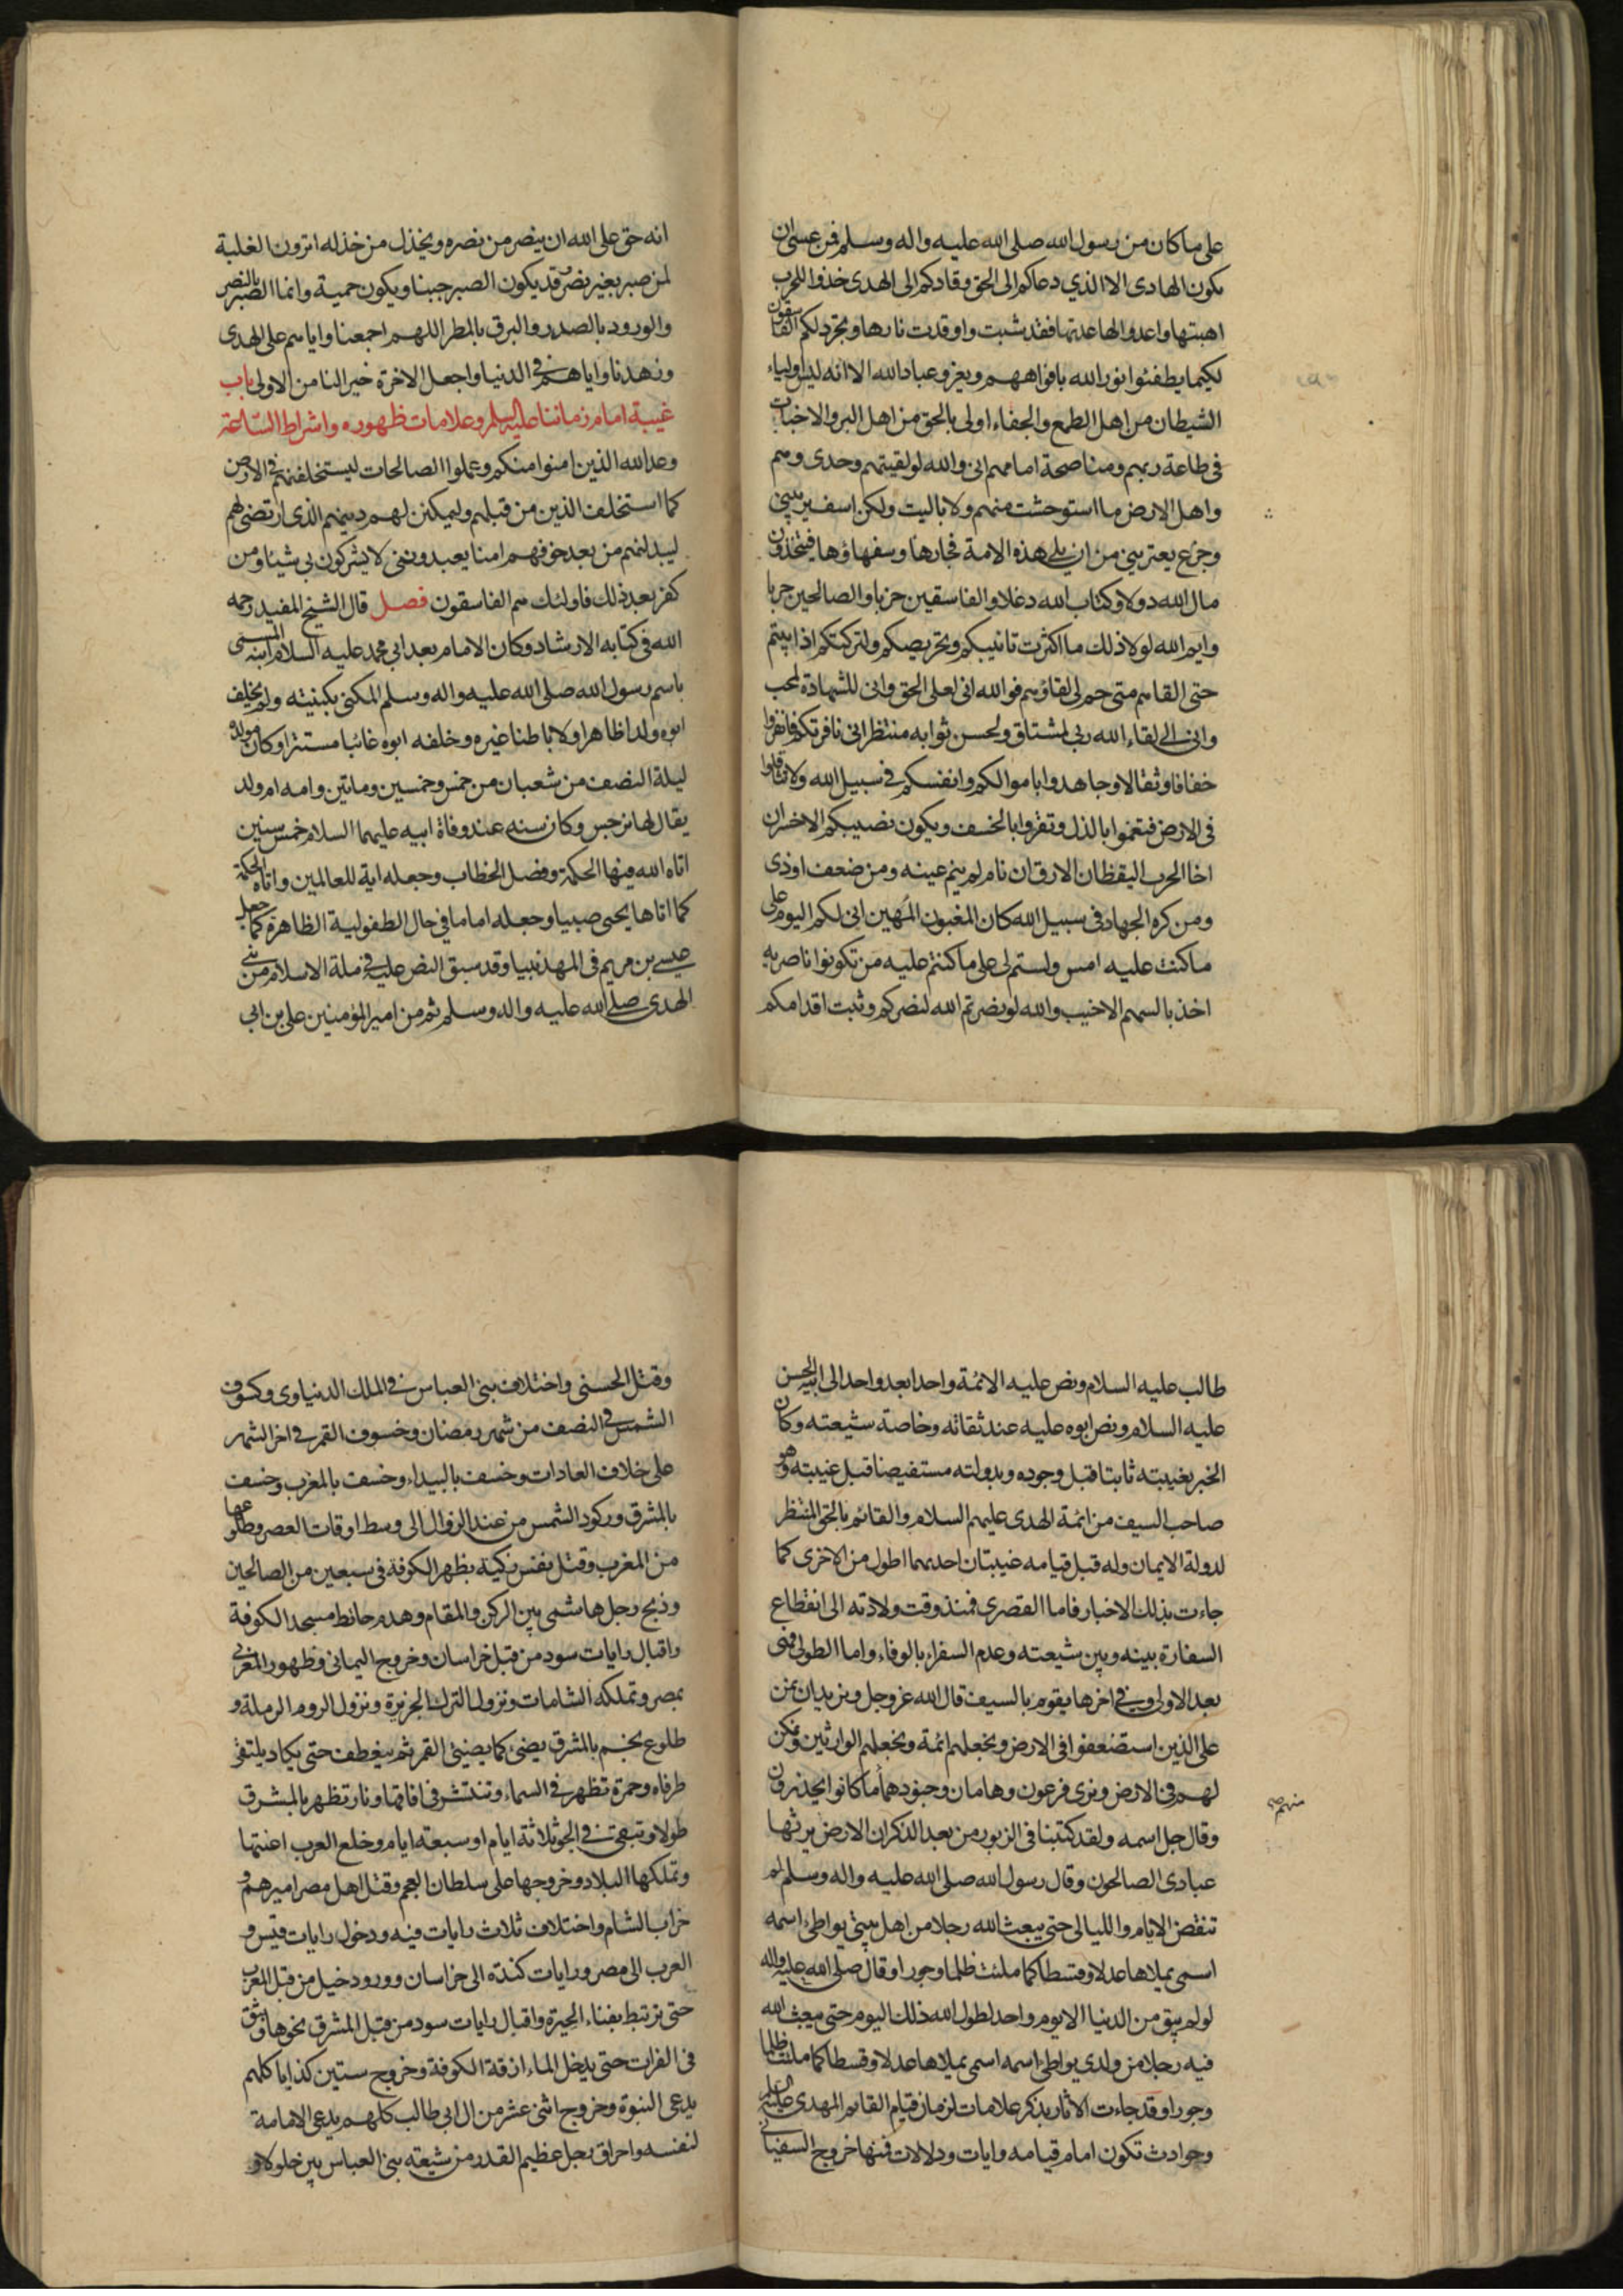 على ما كان من رسول الله صلى الله عليه واله وسلم فمن عسى ان
يكون الهادى الا الذي دعاكم الى الحق وقادكم الى الهدى خذوا للحرب
اهبتها واعدوا لها عدتها فقد شبت واوقدت نارها وتجرد لكم الفاسقون
لكيما يطفئوا نور الله بافواههم ويغزو عباد الله الا انه ليس اولياء
الشيطان من اهل الطمع والجفاء اولى بالحق من اهل البر والاخبات
فى طاعة ربهم ومناصحة امامهم انى والله لو لقيتهم وحدى وهم
واهل الارض ما استوحشت منهم ولا باليت ولكن اسف يريبنى
وجزع يعترينى من ان يلى هذه الامة فجارها وسفهاؤها فيتخذون
مال الله دولا وكتاب الله دغلا والفاسقين حزبا والصالحين حربا
وايم الله لولا ذلك ما اكثرت تانيبكم وتحريصكم ولتركتكم اذا ابيتم
حتى القاهم متى حم لى لقاؤهم فوالله انى لعلى الحق وانى للشهادة لمحب
وانى الى لقاء الله ربى لمشتاق ولحسن ثوابه منتظر انى نافرتكم فانفروا
خفافا وثقالا وجاهدوا باموالكم وانفسكم فى سبيل الله ولا تثاقلوا
فى الارض فتغموا بالذل وتقروا بالخسف ويكون نصيبكم الاخسر ان
اخا الحرب اليقظان الارق ان نام لم ينم عينه ومن ضعف اوذى
ومن كره الجهاد فى سبيل الله كان المغبون المهين انى لكم اليوم على
ما كنت عليه امس ولستم لى على ما كنتم عليه من تكونوا ناصريه
اخذ بالسهم الاخيب والله لو نصرتم الله لنصركم وثبت اقدامكم
انه حق على الله ان ينصر من نصره ويخذل من خذله اترون الغلبة
لمن صبر بغير نصر قد يكون الصبر جبنا ويكون حمية وانما الصبر بالنصر
والورود بالصدر والبرق بالمطر اللهم اجمعنا واياهم على الهدى
وزهدنا واياهم فى الدنيا واجعل الاخرة خيرا لنا من الاولى باب
غيبة امام زماننا عليه السلم وعلامات ظهوره واشراط الساعة
وعد الله الذين امنوا منكم وعملوا الصالحات ليستخلفنهم فى الارض
كما استخلف الذين من قبلهم وليمكنن لهم دينهم الذى ارتضى لهم
ليبدلنهم من بعد خوفهم امنا يعبدوننى لا يشركون بى شيئا ومن
كفر بعد ذلك فاولئك هم الفاسقون فصل قال الشيخ المفيد رحمه
الله فى كتابه الارشاد وكان الامام بعد ابى محمد عليه السلام ابنه المسمى
باسم رسول الله صلى الله عليه واله وسلم المكنى بكنيته ولم يخلف
ابوه ولدا ظاهرا ولا باطنا غيره وخلفه ابوه غائبا مستترا وكان مولده
ليلة النصف من شعبان من خمس وخمسين وماتين وامه ام ولد
يقال لها نرجس وكان سنه عند وفاة ابيه عليهما السلام خمس سنين
اتاه الله فيها الحكمة وفصل الخطاب وجعله اية للعالمين واتاه الحكمة
كما اتاها يحيى صبيا وجعله اماما فى حال الطفولية الظاهرة كما جعل
عيسى بن مريم فى المهد نبيا وقد سبق النص عليه فى ملة الاسلام من نبى
الهدى صلى الله عليه واله وسلم ثم من امير المؤمنين على بن ابى
طالب عليه السلام ونص عليه الائمة واحدا بعد واحد الى ابيه الحسن
عليه السلام ونص ابوه عليه عند ثقاته وخاصة شيعته وكان
الخبر بغيبته ثابتا قبل وجوده وبدولته مستفيضا قبل غيبته وهو
صاحب السيف من ائمة الهدى عليهم السلام والقائم بالحق المنتظر
لدولة الايمان وله قبل قيامه غيبتان احديهما اطول من الاخرى كما
جاءت بذلك الاخبار فاما القصرى فمنذ وقت ولادته الى انقطاع
السفارة بينه وبين شيعته وعدم السفراء بالوفاء واما الطولى فهى
بعد الاولى وفى اخرها يقوم بالسيف قال الله عز وجل ونريد ان نمن
على الذين استضعفوا فى الارض ونجعلهم ائمة ونجعلهم الوارثين ونمكن
لهم فى الارض ونرى فرعون وهامان وجنودهما ما كانوا يحذرون
منهم صح
وقال جل اسمه ولقد كتبنا فى الزبور من بعد الذكر ان الارض يرثها
عبادى الصالحون وقال رسول الله صلى الله عليه واله وسلم لم
تنقض الايام والليالى حتى يبعث الله رجلا من اهل بيتى يواطى اسمه
اسمى يملاها عدلا وقسطا كما ملئت ظلما وجورا وقال صلى الله عليه واله
لو لم يبق من الدنيا الا يوم واحد لطول الله ذلك اليوم حتى يبعث الله
فيه رجلا من ولدى يواطى اسمه اسمى يملاها عدلا وقسطا كما ملئت ظلما
وجورا وقد جاءت الاثار بذكر علامات لزمان قيام القائم المهدى عليه السلم
وحوادث تكون امام قيامه وايات ودلالات فمنها خروج السفيانى
وقتل الحسنى واختلاف بنى العباس فى الملك الدنياوى وكسوف
الشمس فى النصف من شهر رمضان وخسوف القمر فى اخر الشهر
على خلاف العادات وخسف بالبيداء وخسف بالمغرب وخسف
بالمشرق وركود الشمس من عند الزوال الى وسط اوقات العصر وطلوعها
من المغرب وقتل نفس زكية بظهر الكوفة فى سبعين من الصالحين
وذبح رجل هاشمى بين الركن والمقام وهدم حائط مسجد الكوفة
واقبال رايات سود من قبل خراسان وخروج اليمانى وظهور المغربى
بمصر وتملكه الشامات ونزول الترك الجزيرة ونزول الروم الرملة و
طلوع نجم بالمشرق يضئ كما يضئ القمر ثم ينعطف حتى يكاد يلتقى
طرفاه وحمرة تظهر فى السماء وتنتشر فى افاقها ونار تظهر بالمشرق
طولا وتبقى فى الجو ثلاثة ايام او سبعة ايام وخلع العرب اعنتها
وتملكها البلاد وخروجها على سلطان العجم وقتل اهل مصر اميرهم و
خراب الشام واختلاف ثلاث رايات فيه ودخول رايات قيس و
العرب الى مصر ورايات كندة الى خراسان وورود خيل من قبل المغرب
حتى تربتط بفناء الحيرة واقبال رايات سود من قبل المشرق نحوها وبثق
فى الفرات حتى يدخل الماء ازقة الكوفة وخروج ستين كذابا كلهم
يدعى النبوة وخروج اثنى عشر من ال ابى طالب كلهم يدعى الامامة
لنفسه واحراق رجل عظيم القدر من شيعة بنى العباس بين جلولاء و